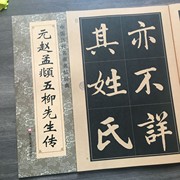 元赵孟頫五柳先生传
亦不詳
其姓氏